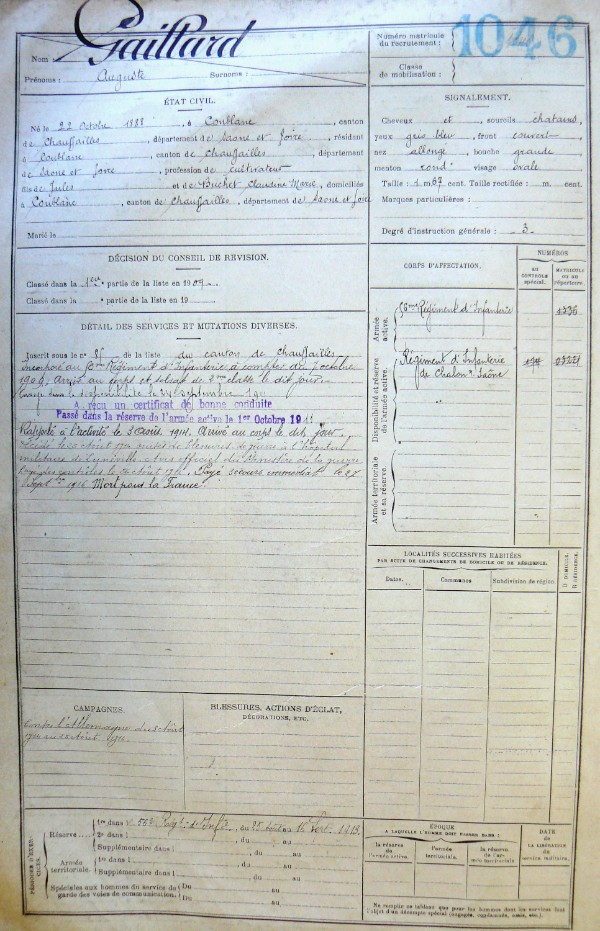 Nom : Gaillard
Prénoms : Auguste Surnoms :
Numéro matricule
du recrutement :
1046
Classe
de mobilisation :
ÉTAT CIVIL.
Né le 22 octobre 1888, à Coublanc, canton
de Chauffailles, département de Saone et Loire, résident
à Coublanc, canton de Chauffailles, département
de Saone et Loire, profession de cultivateur
fils de Jules et de Buchet Claudine Marie, domiciliés
à Coublanc, canton de Chauffailles, département de Saone et Loire
Marié à
SIGNALEMENT.
Cheveux et sourcils chatains
yeux gris bleu, front couvert
nez allongé, bouche grande
menton rond visage ovale
Taille : 1 m. 67 cent. Taille rectifiée : m. cent.
Marques particulières :
Degré d'instruction générale : 3
DÉCISION DU CONSEIL DE REVISION.
Classé dans la 1ere partie de la liste en 1909
Classé dans la partie de la liste en 19
DÉTAIL DES SERVICES ET MUTATIONS DIVERSES.
Inscrit sous le n° de la liste du canton de Chauffailles
Incorporé au Régiment d'Infanterie à compter du 7 octobre
1909, Arrivé au corps et soldat de 2me classe le dit jour.
septembre 1911
A reçu un certificat de bonne conduite
Passé dans la réserve de l'armée active le 1er Octobre 1911
Rappelé à l'activité le 3 Août 1914. Arrivé au corps le dit jour.
militaire de Lunéville avis officiel du Ministère de la guerre
Payé secours immédiat le 27
Sept bre 1916 Mort pour la France
CORPS D'AFFECTATION.
NUMÉROS
AU CONTROLE spécial.
MATRICULE OU AU répertoire.
Armée active.
56me Régiment d'Infanterie
Disponibilité et réserve de l'armée active.
Régiment d'Infanterie
de Chalon s/ Saône
Armée territoriale et sa réserve.
LOCALITÉS SUCCESSIVES HABITÉES
PAR SUITE DE CHANGEMENTS DE DOMICILE OU DE RÉSIDENCE.
Dates. Communes Subdivision de région D DOMICILE. R RÉSIDENCE.
CAMPAGNES.
contre l'Allemagne
BLESSURES, ACTIONS D'ÉCLAT,
DÉCORATIONS, ETC.
PÉRIODES D'EXERCICES.
Réserve
1re dans le 56e Régt d'Infie, du 25 août au 16 Sept. 1913
2e dans l , du au
Supplémentaire dans l , du au
Armée territoriale.
1re dans l , du au
Supplémentaire dans l , du au
Spéciales aux hommes du service de garde des voies de communication.
Du au
Du au
ÉPOQUE
A LAQUELLE L'HOMME DOIT PASSER DANS :
la réserve de l'armée active.
l'armée territoriale.
la réserve de l'armée territoriale
DATE
de
LA LIBÉRATION
du
service militaire.
Ne remplir ce tableau que pour les hommes dont les services font
l'objet d'un décompte spécial (engagés, condamnés, omis, etc.).